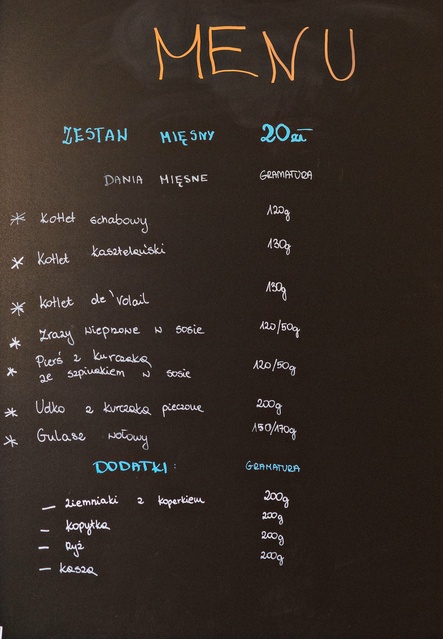 MENU
ZESTAW MIĘSNY 20zł
DANIA MIĘSNE GRAMATURA
* Kotlet schabowy 120g
* Kotlet kasztelański 130g
* Kotlet de'Volail 130g
* Zrazy wieprzone w sosie 120/50g
* Pierś z kurczaka
ze szpinakiem w sosie 120/50g
* Udko z kurczaka pieczone 200g
* Gulasz wołowy 150/170g
DODATKI: GRAMATURA
— ziemniaki z koperkiem 200g
— kopytka 200g
— Ryż 200g
— kasza 200g